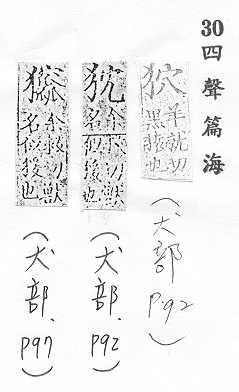 30 四聲篇海
狖 羊就切
黑猿也
(犬部 P92)
余切獸
名似猨也
(犬部.P92)
余救切獸
名似猨也
(犬部.P97)